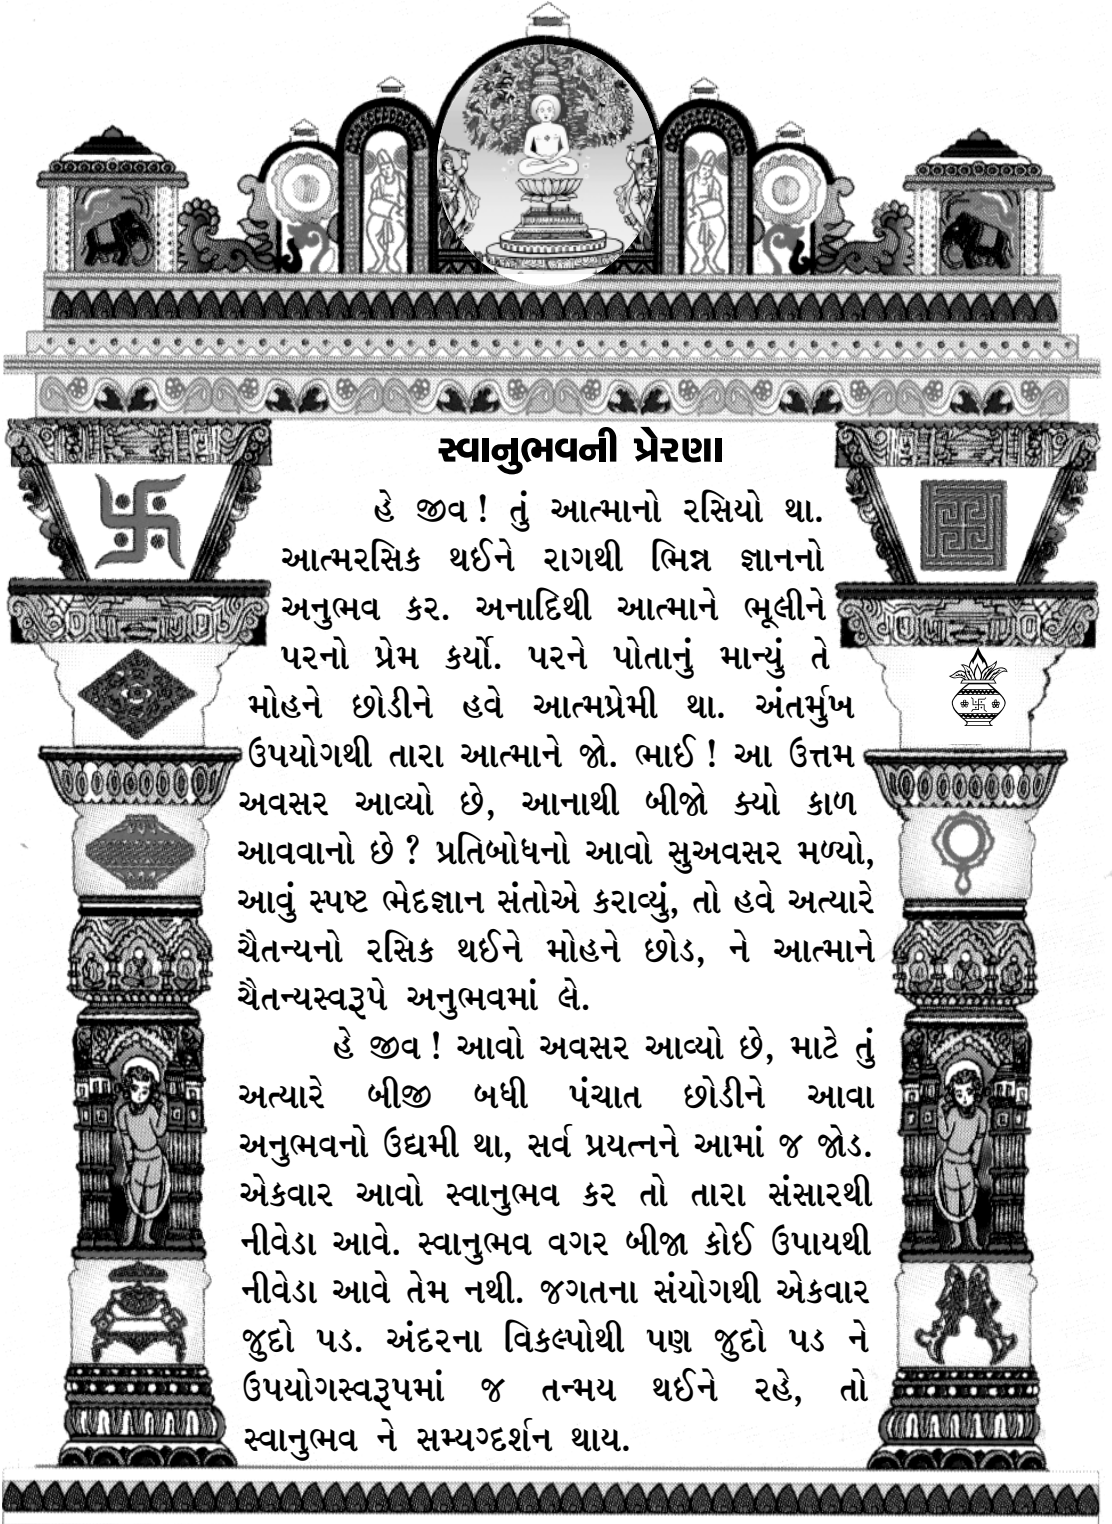 સ્વાનુભવની પ્રેરણા
હે જીવ ! તું આત્માનો રસિયો થા.
આત્મરસિક થઈને રાગથી ભિન્ન જ્ઞાનનો
અનુભવ કર. અનાદિથી આત્માને ભૂલીને
પરનો પ્રેમ કર્યો. પરને પોતાનું માન્યું તે
મોહને છોડીને હવે આત્મપ્રેમી થા. અંતર્મુખ
ઉપયોગથી તારા આત્માને જો. ભાઈ ! આ ઉત્તમ
અવસર આવ્યો છે, આનાથી બીજો ક્યો કાળ
આવવાનો છે ? પ્રતિબોધનો આવો સુઅવસર મળ્યો,
આવું સ્પષ્ટ ભેદજ્ઞાન સંતોએ કરાવ્યું, તો હવે અત્યારે
ચૈતન્યનો રસિક થઈને મોહને છોડ, ને આત્માને
ચૈતન્યસ્વરૂપે અનુભવમાં લે.
હે જીવ ! આવો અવસર આવ્યો છે, માટે તું
અત્યારે બીજી બધી પંચાત છોડીને આવા
અનુભવનો ઉદ્યમી થા, સર્વ પ્રયત્નને આમાં જ જોડ.
એકવાર આવો સ્વાનુભવ કર તો તારા સંસારથી
નીવેડા આવે. સ્વાનુભવ વગર બીજા કોઈ ઉપાયથી
નીવેડા આવે તેમ નથી. જગતના સંયોગથી એકવાર
જુદો પડ. અંદરના વિકલ્પોથી પણ જુદો પડ ને
ઉપયોગસ્વરૂપમાં જ તન્મય થઈને રહે, તો
સ્વાનુભવ ને સમ્યગ્દર્શન થાય.